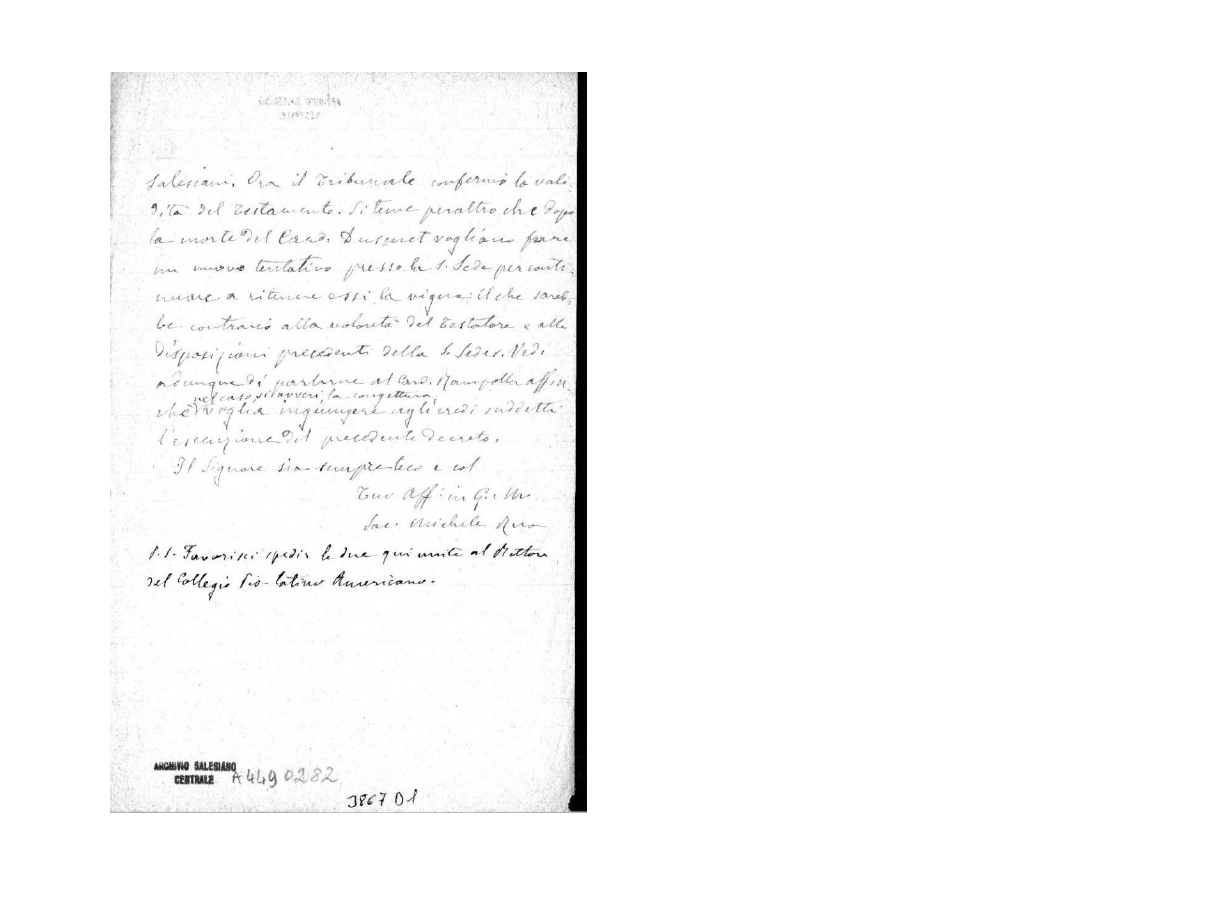 Salesiani. Ora il Tribunale confermò la vali-
dità del Testamento. Si teme peraltro che dopo
la morte del Card. Dusmet vogliano fare
un nuovo tentativo presso la S. Sede per conti-
nuare a ritenere essi la vigna; il che sareb-
be contrario alla volontà del Testatore e alle
disposizioni precedenti della S. Sede. Vedi
adunque di parlarne al Card. Rampolla affin-
nel caso si avveri, la congettura,
chè voglia ingiungere agli eredi suddetti
l'esecuzione del precedente decreto.
Il Signore sia sempre teco e col
Tuo Aff. in G. e M.
Sac. Michele Rua
P.S. Favorisci spedir le due qui unite al Rettore
del Collegio Pio-latino Americano.
ARCHIVIO SALESIANO
CENTRALE A4490282
3867 D1